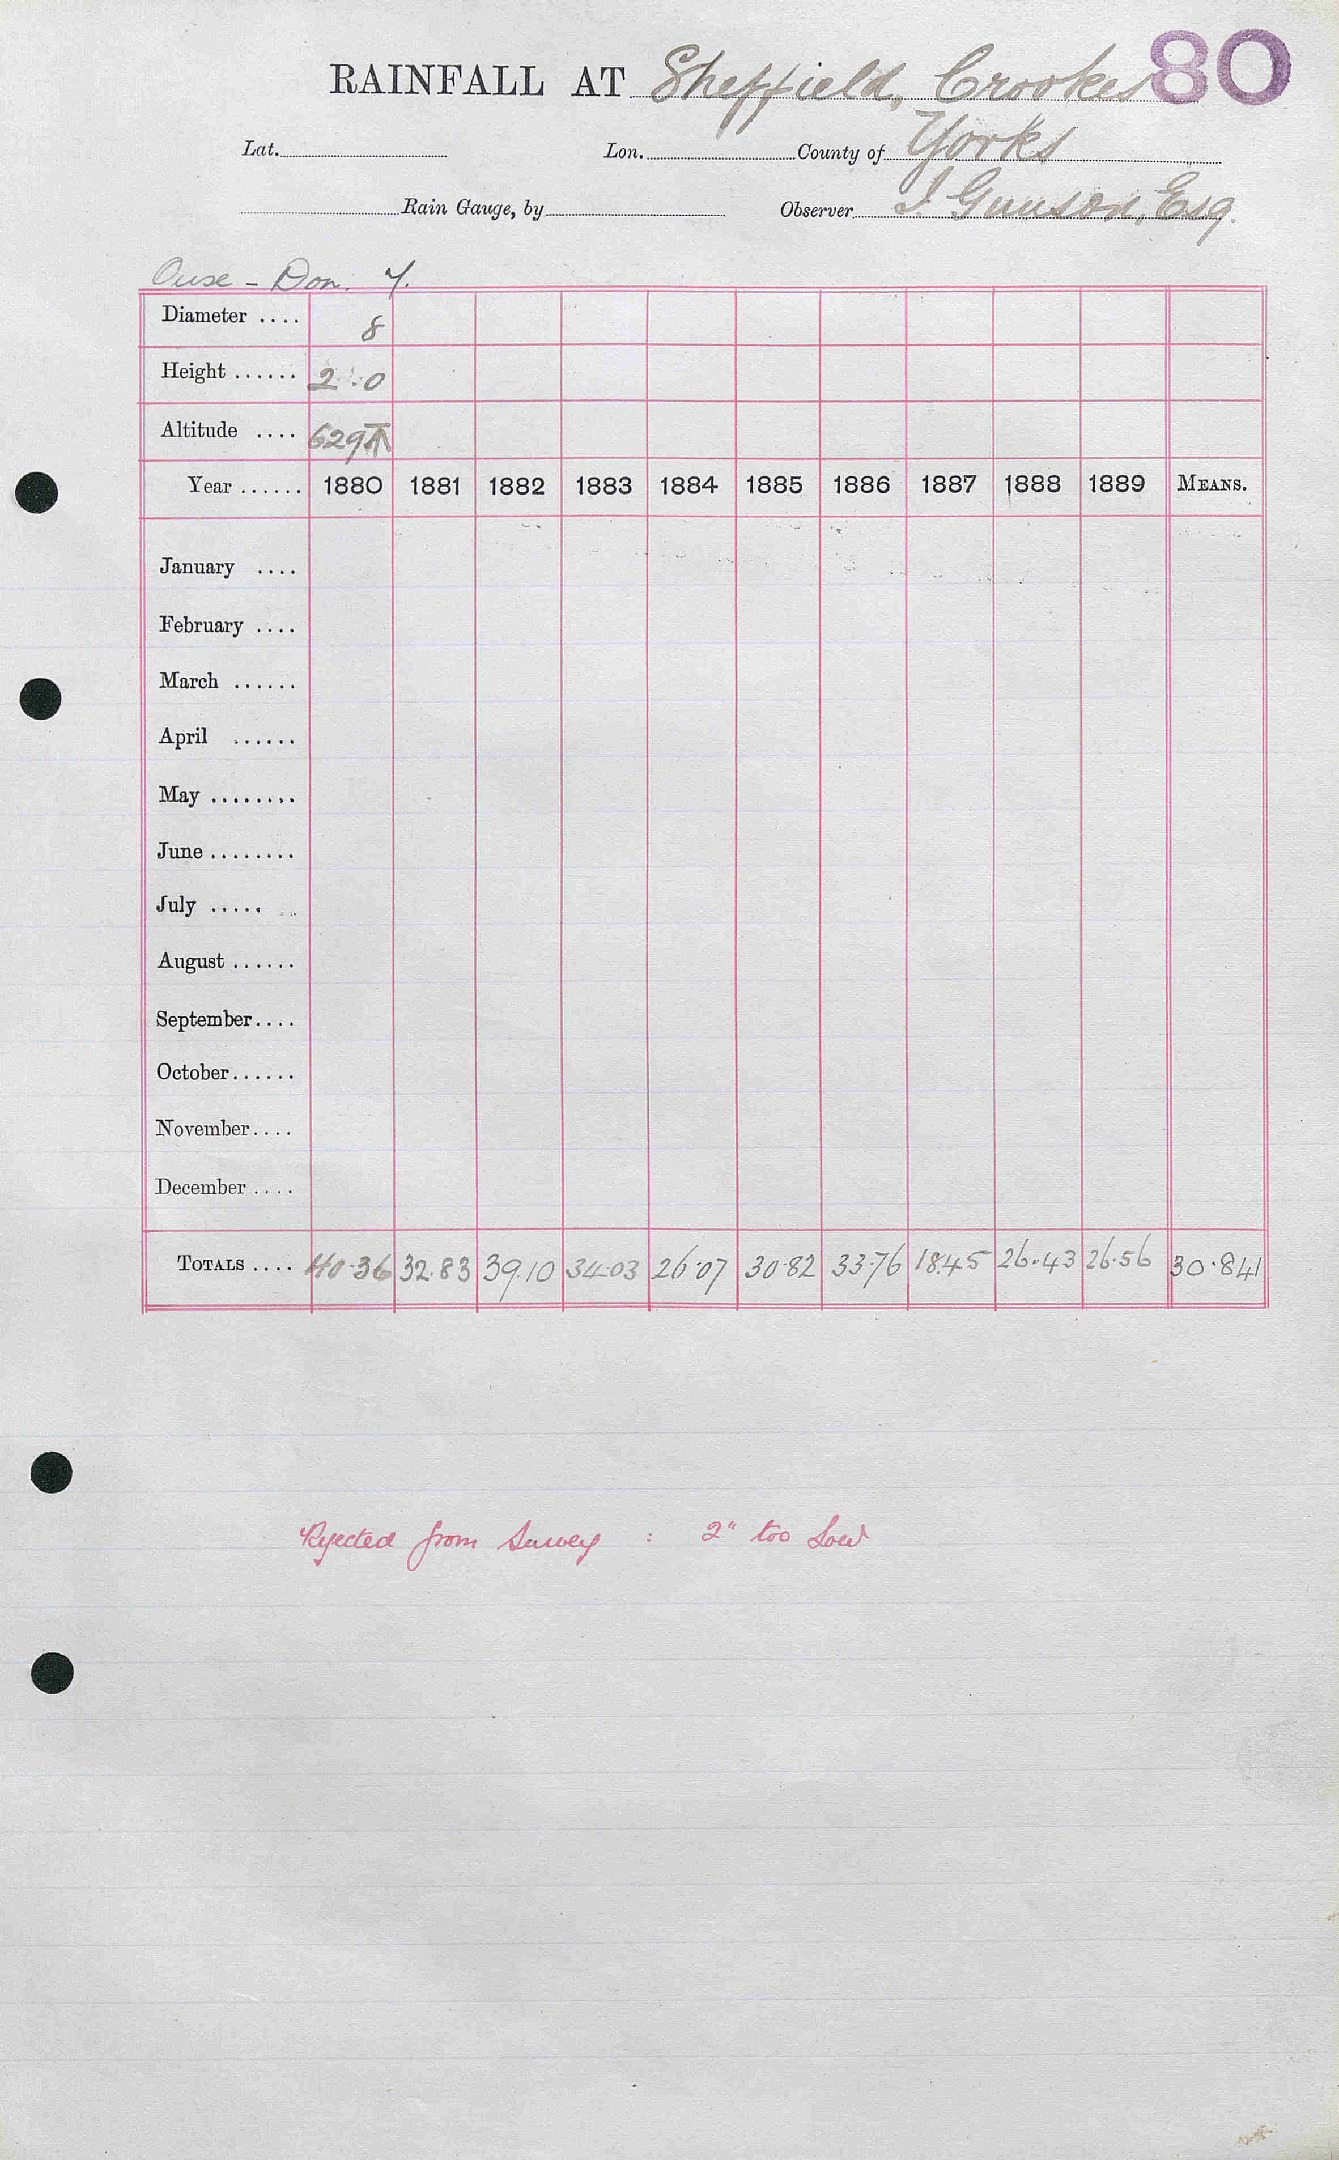 80
RAINFALL AT Sheffield, Crookes
Lat. Lon. County of Yorks
Rain Gauge, by Observer I. Gunson, Esq.
Ouse - Don. 7.
Diameter .... 8
Height ...... 2 : 0
Altitude .... 629 T
Year ...... 1880 1881 1882 1883 1884 1885 1886 1887 1888 1889 MEANS.
January ....
February ....
March ......
April ......
May ........
June ........
July .......
August ......
September ....
October ......
November ....
December ....
TOTALS .... 40.36 32.83 39.10 34.03 26.07 30.82 33.76 18.45 26.43 26.56 30.841
Rejected from Survey : 2" too low